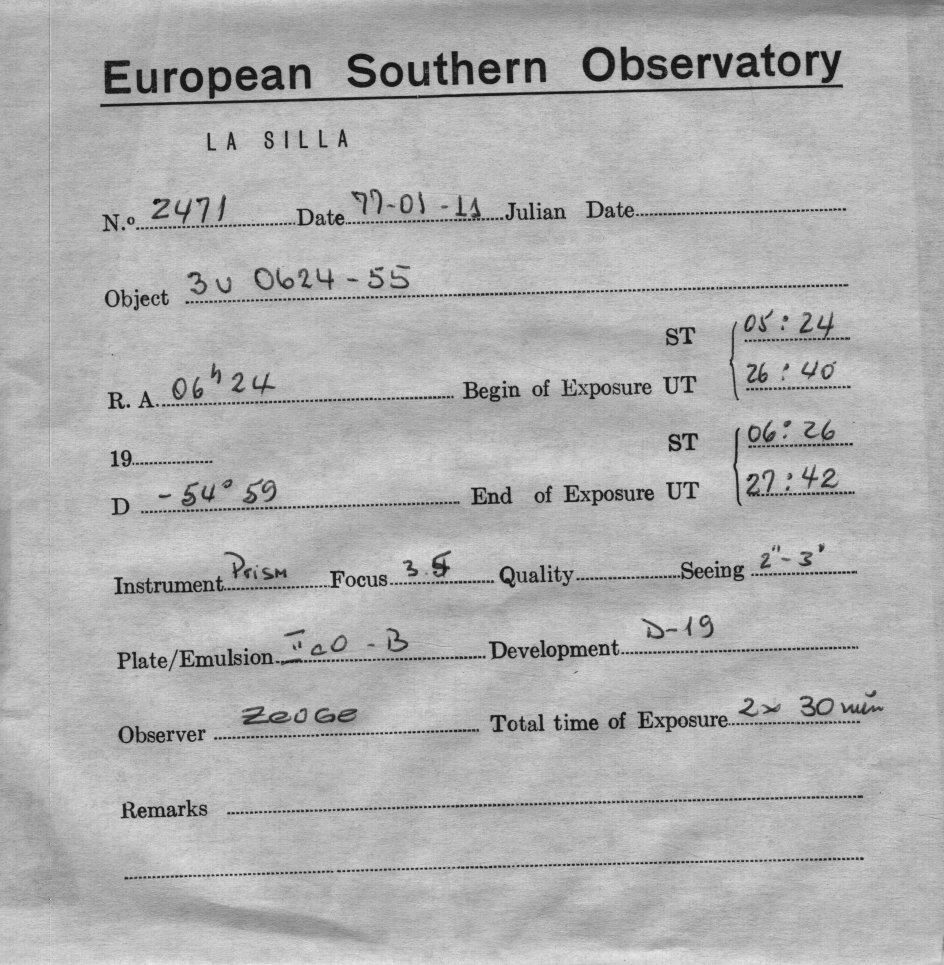 European Southern Observatory
LA SILLA
N.º 2471 Date 77-01-11 Julian Date
Object 3U 0624-55
ST 05:24
R. A. 06h 24 Begin of Exposure UT 26:40
19 ST 06:26
D -54° 59 End of Exposure UT 27:42
Instrument Prism Focus 3.5 Quality Seeing 2"-3"
Plate/Emulsion IIaO-B Development D-19
Observer Total time of Exposure 2x 30 min
Remarks